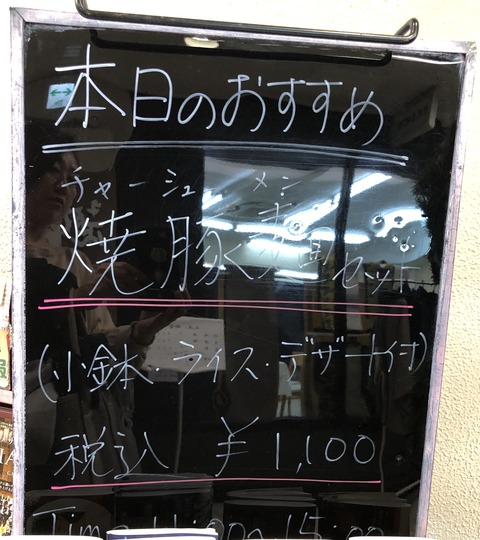 本日のおすすめ
チャーシュー メン
焼豚麺セット
(小鉢・ライス・デザート付)
税込 ¥1,100
Time 11:00~15:00